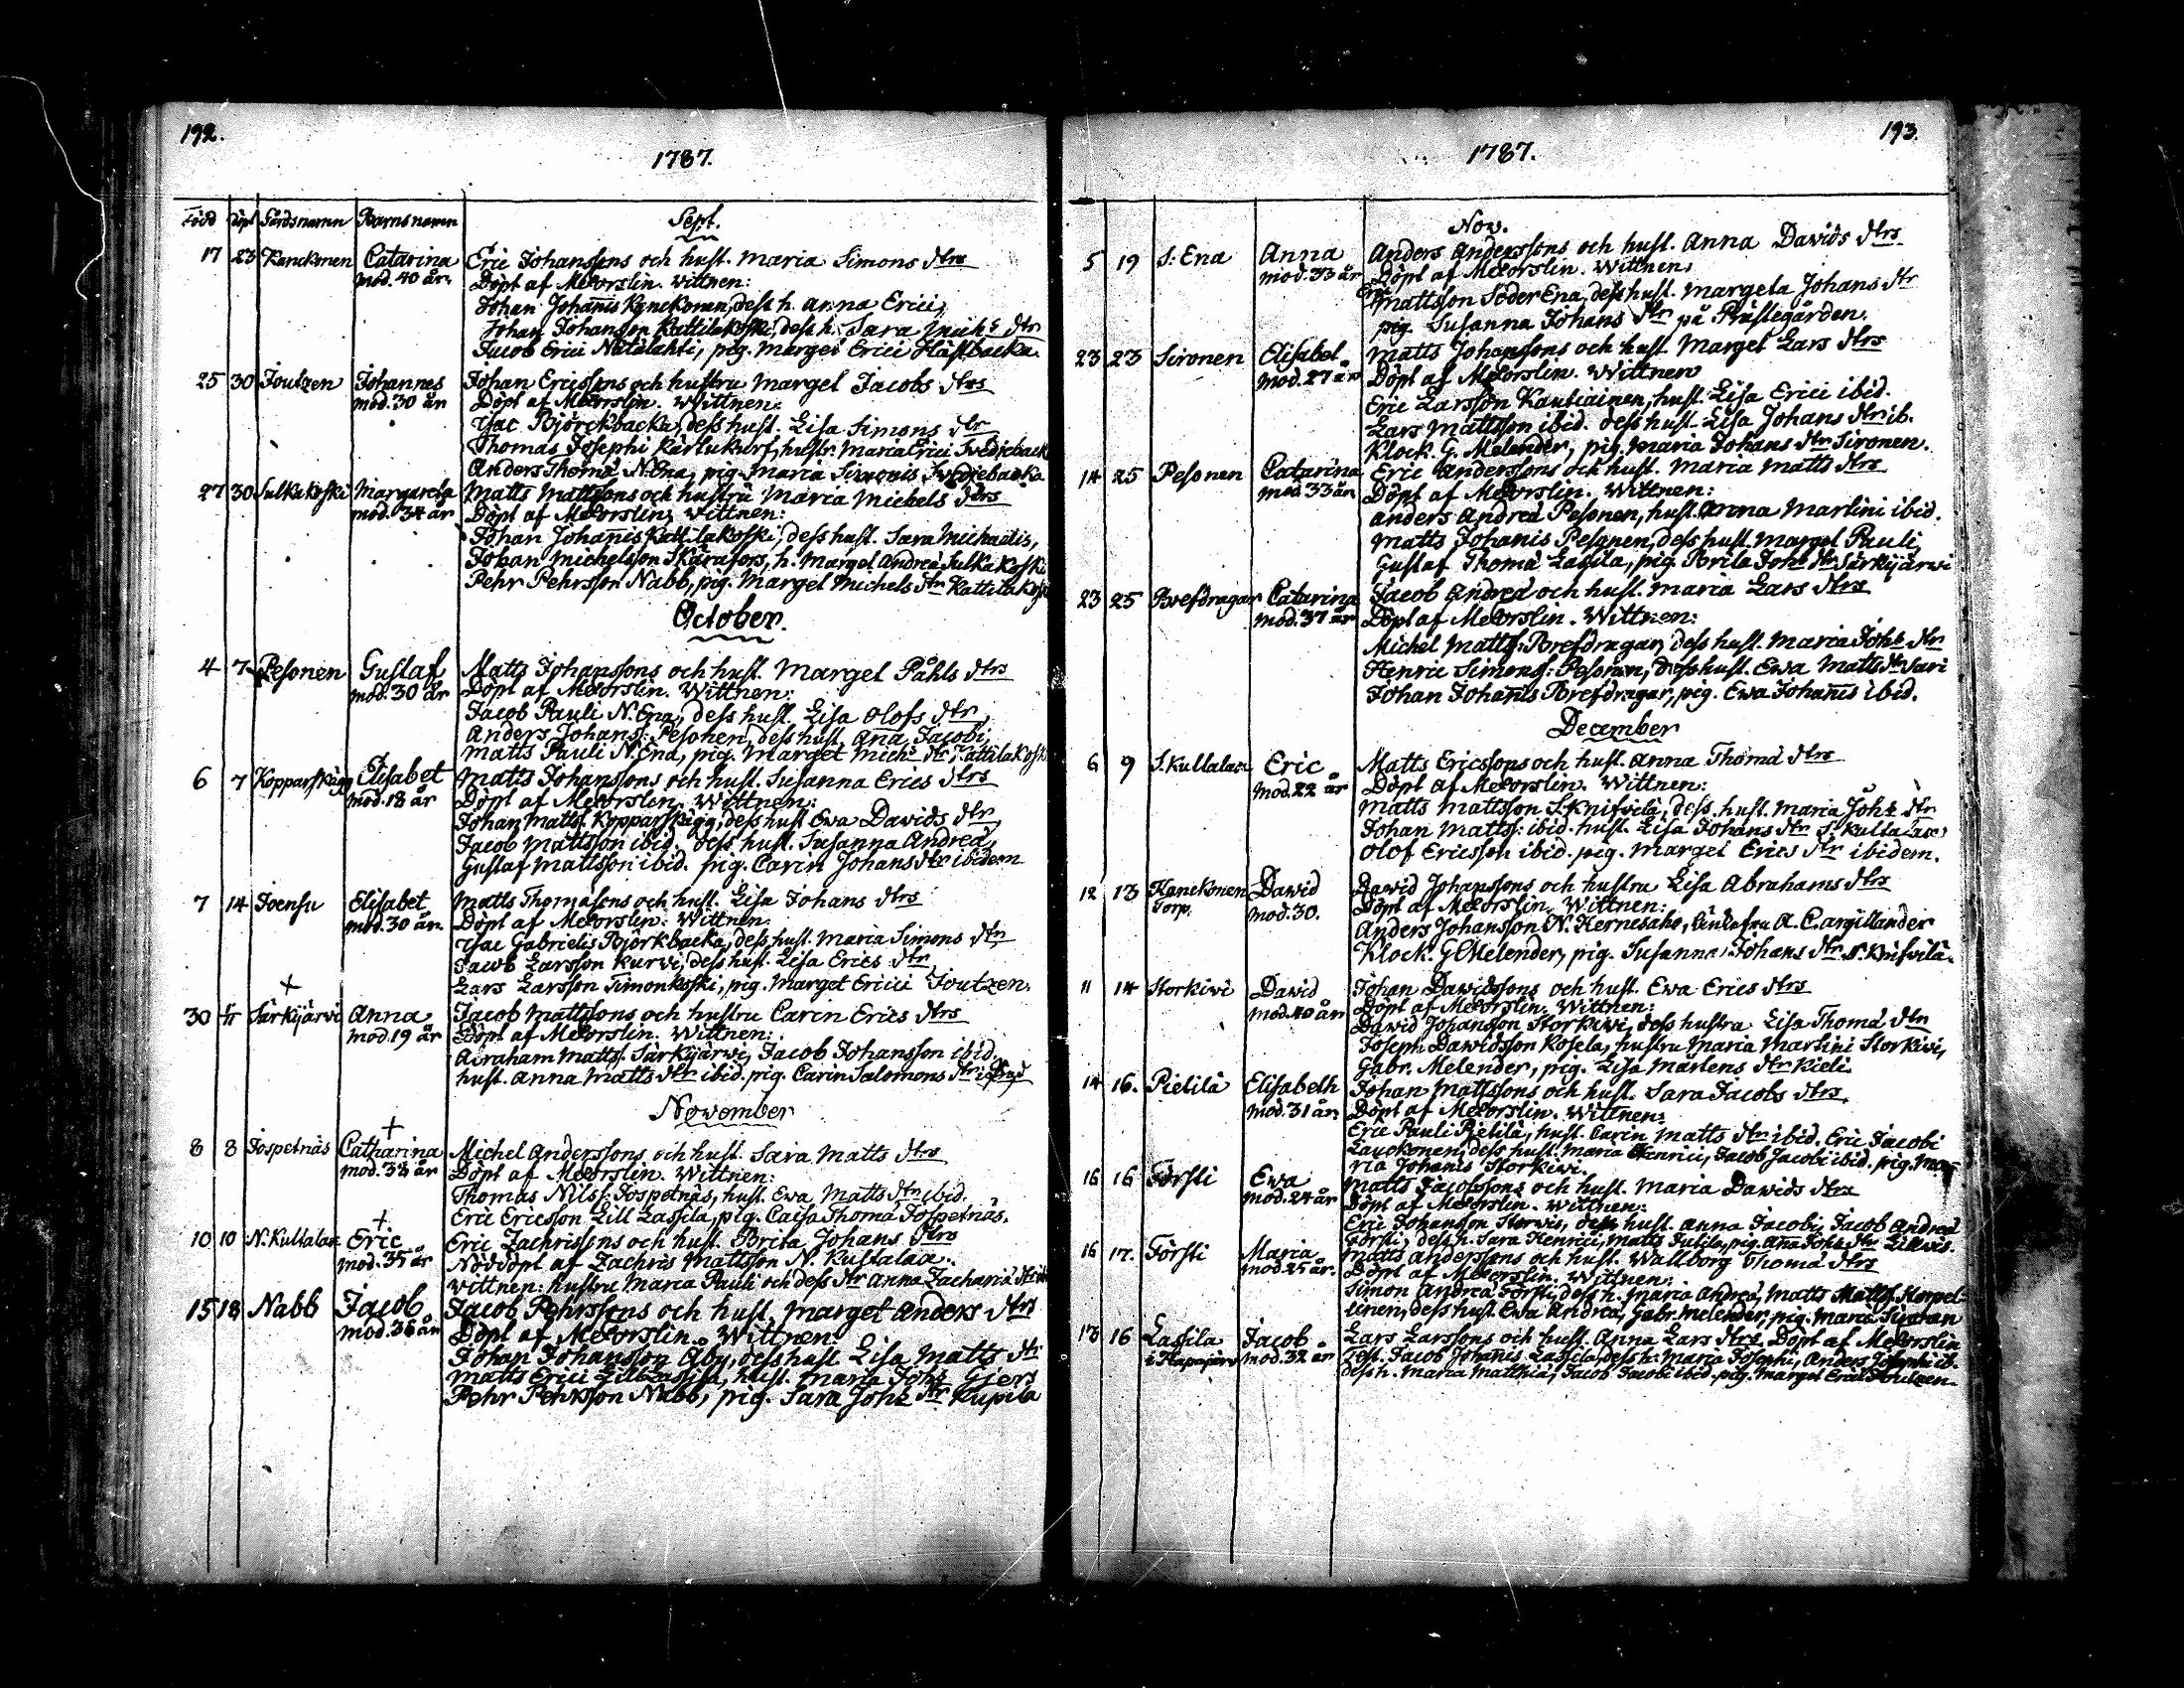 192.
1787.
Född Döpt Gårdsnamn Barnsnamn
Sept.
17 23 Kanckonen Catarina Eric Johanssons och hust. Maria Simons dtrs
mod. 40 år. Döpt af Meörslin. Wittnen:
Johan Johanis Kanckonen, dess h. Anna Erici,
Johan Johansson Kattilakoski dess h. Sara Mich:s dtr
Jacob Erici Niitälahti, pig. Marget Erici Hästbacka.
25 30 Joutzen Johannes Johan Ericssons och hustru Marget Jacobs dtrs
mod. 30 år Döpt af Meörslin. Wittnen:
Isac Björckbacka, dess hust. Lisa Simons dtr
Thomas Josephi Kärlukurf, hustr. Maria Erici Svediebacka
Anders Thomæ N. Ena, pig. Maria Simonis Svediebacka
27 30 Julkukoski Margareta Matts Mattssons och hustru Maria Michels dtrs
mod. 34 år Döpt af Meörslin. Wittnen:
Johan Johanis Kattilakoski, dess hust. Sara Michaelis,
Johan Michelsson Skärafors, h. Marget Andreæ Julkukoski
Pehr Pehrsson Nabb, pig. Marget Michels dtr Kattilakoski
October.
4 7 Pesonen Gustaf Matts Johanssons och hust. Marget Påhls dtrs
mod. 30 år Döpt af Meörslin. Wittnen:
Jacob Pauli N. Ena, dess hust. Lisa Olofs dtr,
Anders Johans: Pesonen, dess hust. Ana Jacobi,
Matts Pauli N. Ena, pig. Marget Mich:s dtr Kattilakoski
6 7 Kopparskägg Elisabet Matts Johanssons och hust. Susanna Erics dtrs
mod. 18 år Döpt af Meörslin. Wittnen:
Johan Matts: Kopparskägg, dess hust Ewa Davids dtr,
Jacob Mattsson ibid. dess hust. Susanna Andreæ,
Gustaf Mattsson ibid. pig. Carin Johans dtr ibidem
7 14 Joensu Elisabet Matts Thomæsons och hust. Lisa Johans dtrs
mod. 30 år. Döpt af Meörslin. Wittnen:
Isac Gabrielis Björkbacka, dess hust. Maria Simons dtr
Jacob Larsson Kurvi, dess hust. Lisa Erics dtr
Lars Larsson Timonkoski, pig. Marget Erici Joutzen.
+
30 1/11 Särkijärvi Anna Jacob Mattssons och hustru Carin Erics dtrs
mod. 19 år Döpt af Meörslin. Wittnen:
Abraham Matts: Särkijärwi, Jacob Johansson ibid.
hust. Anna Matts dtr ibid. pig. Carin Salomons dtr
November
+
8 8 Jospetnäs Catharina Michel Anderssons och hust. Sara Matts dtrs
mod. 38 år Döpt af Meörslin. Wittnen:
Thomas Nils: Jospetnäs, hust. Ewa Matts dtr ibid.
Eric Ericsson Lill Lassila, pig. Caisa Thomæ Jospetnäs.
+
10 10 N. Kultalax Eric Eric Zachrissons och hust. Brita Johans dtrs
mod. 35 år Nöddöpt af Zachris Mattsson N. Kultalax.
Wittnen: hustru Maria Pauli och dess dtr Anna Zachariæ
15 18 Nabb Jacob Jacob Pehrssons och hust. Marget Anders dtrs
mod. 36 år Döpt af Meörslin. Wittnen:
Johan Johansson Åby, dess hust Lisa Matts dtr
Matts Erici Lill Lassila, hust. Maria Joh:s Gjers
Pehr Pehrsson Nabb, pig. Sara Joh:s dtr Kupila
193.
1787.
Nov.
5 19 S. Ena Anna Anders Anderssons och hust. Anna Davids dtrs
mod. 33 år Döpt af Meörslin. Wittnen:
Eric Mattsson Söder Ena, dess hust. Margeta Johans dtr
pig. Susanna Johans dtr på Prästegården.
23 23 Sironen Elisabet Matts Johanssons och hust. Marget Lars dtrs
mod. 27 år Döpt af Meörslin. Wittnen
Eric Larsson Kautiainen, hust. Lisa Erici ibid.
Lars Mattsson ibid. dess hust. Lisa Johans dtr ib.
Klock. G. Melender, pig. Maria Johans dtr Sironen.
14 25 Pesonen Catarina Eric Anderssons och hust. Maria Matts dtrs
mod. 33 år Döpt af Meörslin. Wittnen:
Anders Andreæ Pesonen, hust. Anna Martini ibid.
Matts Johanis Pesonen, dess hust. Marget Pauli,
Gustaf Thomæ Lassila, pig. Brita Joh:s dtr Särkijärwi
23 25 Brefdragar Catarina Jacob Andreæ och hust. Maria Lars dtrs
mod. 37 år Döpt af Meörslin. Wittnen:
Michel Matts: Brefdragar, dess hust. Maria Joh:s dtr
Henric Simons: Pesonen, dess hust. Ewa Matts dtr Sari
Johan Johanis Brefdragar, pig. Ewa Johanis ibid.
December
6 9 S. Kultalax Eric Matts Ericssons och hust. Anna Thomæ dtrs
mod. 22 år Döpt af Meörslin. Wittnen:
Matts Mattsson S. Knifvilä, dess hust. Maria Joh:s dtr
Johan Matts: ibid. hust. Lisa Johans dtr S. Kultalax,
Olof Ericsson ibid. pig. Marget Erics dtr ibidem.
12 13 Kanckonen David David Johanssons och hustru Lisa Abrahams dtrs
Torp. mod. 30. Döpt af Meörslin. Wittnen:
Anders Johansson N. Hernesaho, Enkefru A. C. Argillander
Klock. G Melender, pig. Susanna Johans dtr S. Knifvilä.
11 14 Storkivi David Johan Davidssons och hust. Ewa Erics dtrs
mod. 40 år Döpt af Meörslin. Wittnen:
David Johansson Storkivi, dess hustru Lisa Thomæ dtr
Joseph Davidsson Kosela, hustru Maria Martini Storkivi,
Gabr. Melender, pig. Lisa Mårtens dtr Kieli.
14 16. Pielilä Elisabeth Johan Mattssons och hust. Sara Jacobs dtrs.
mod. 31 år Döpt af Meörslin. Wittnen:
Eric Pauli Pielilä, hust. Carin Matts dtr ibid. Eric Jacobi
Lauckonen, dess hust. Maria Henrici, Jacob Jacobi ibid. pig. Ma-
ria Johanis Storkiwi.
16 16 Försti Ewa Matts Jacobssons och hust. Maria Davids dtrs
mod. 24 år Döpt af Meörslin. Wittnen:
Eric Johansson Storvis, dess hust. Anna Jacobi, Jacob Andreæ
Försti, dess h. Sara Henrici, Matts Jutila, pig. Ana Joh:s dtr Lillvis.
16 17. Försti Maria Matts Anderssons och hust. Wallborg Thomæ dtrs
mod. 25 år. Döpt af Meörslin. Wittnen:
Simon Andreæ Försti, dess h. Maria Andreæ, Matts Matts: Horpet-
linen, dess hust. Ewa Andreæ, Gabr. Melender, pig. Maria
13 16 Lassila Jacob Lars Larssons och hust. Anna Lars dtrs. Döpt af Meörslin
mod. 32 år Test. Jacob Johanis Lassila, dess h. Maria Josephi, Anders Josephi ib.
dess h. Maria Matthiæ, Jacob Jacobi ibid. pig. Marget Erici Joutzen.